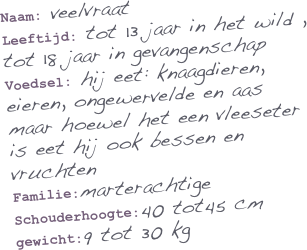 Naam: veelvraat
Leeftijd: tot 13 jaar in het wild,
tot 18 jaar in gevangenschap
Voedsel: hij eet: knaagdieren,
eieren, ongewervelde en aas
maar hoewel het een vleeseter
is eet hij ook bessen en
vruchten
Familie: marterachtige
Schouderhoogte: 40 tot 45 cm
gewicht: 9 tot 30 kg